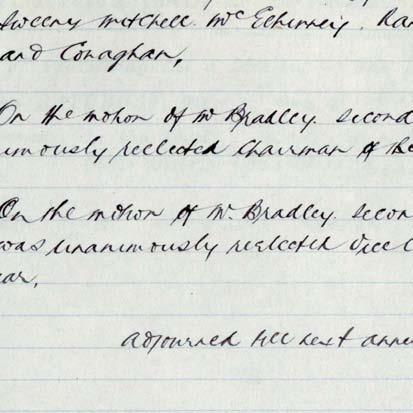 Sweeny Mitchell. Mc Elhinney. Ran
and Conaghan,
On the motion of Mr Bradley. second
nimously reelected chairman of the
On the motion of Mr. Bradley. secon
was unanimously reelected Vice C
ear.
adjourned till next annu